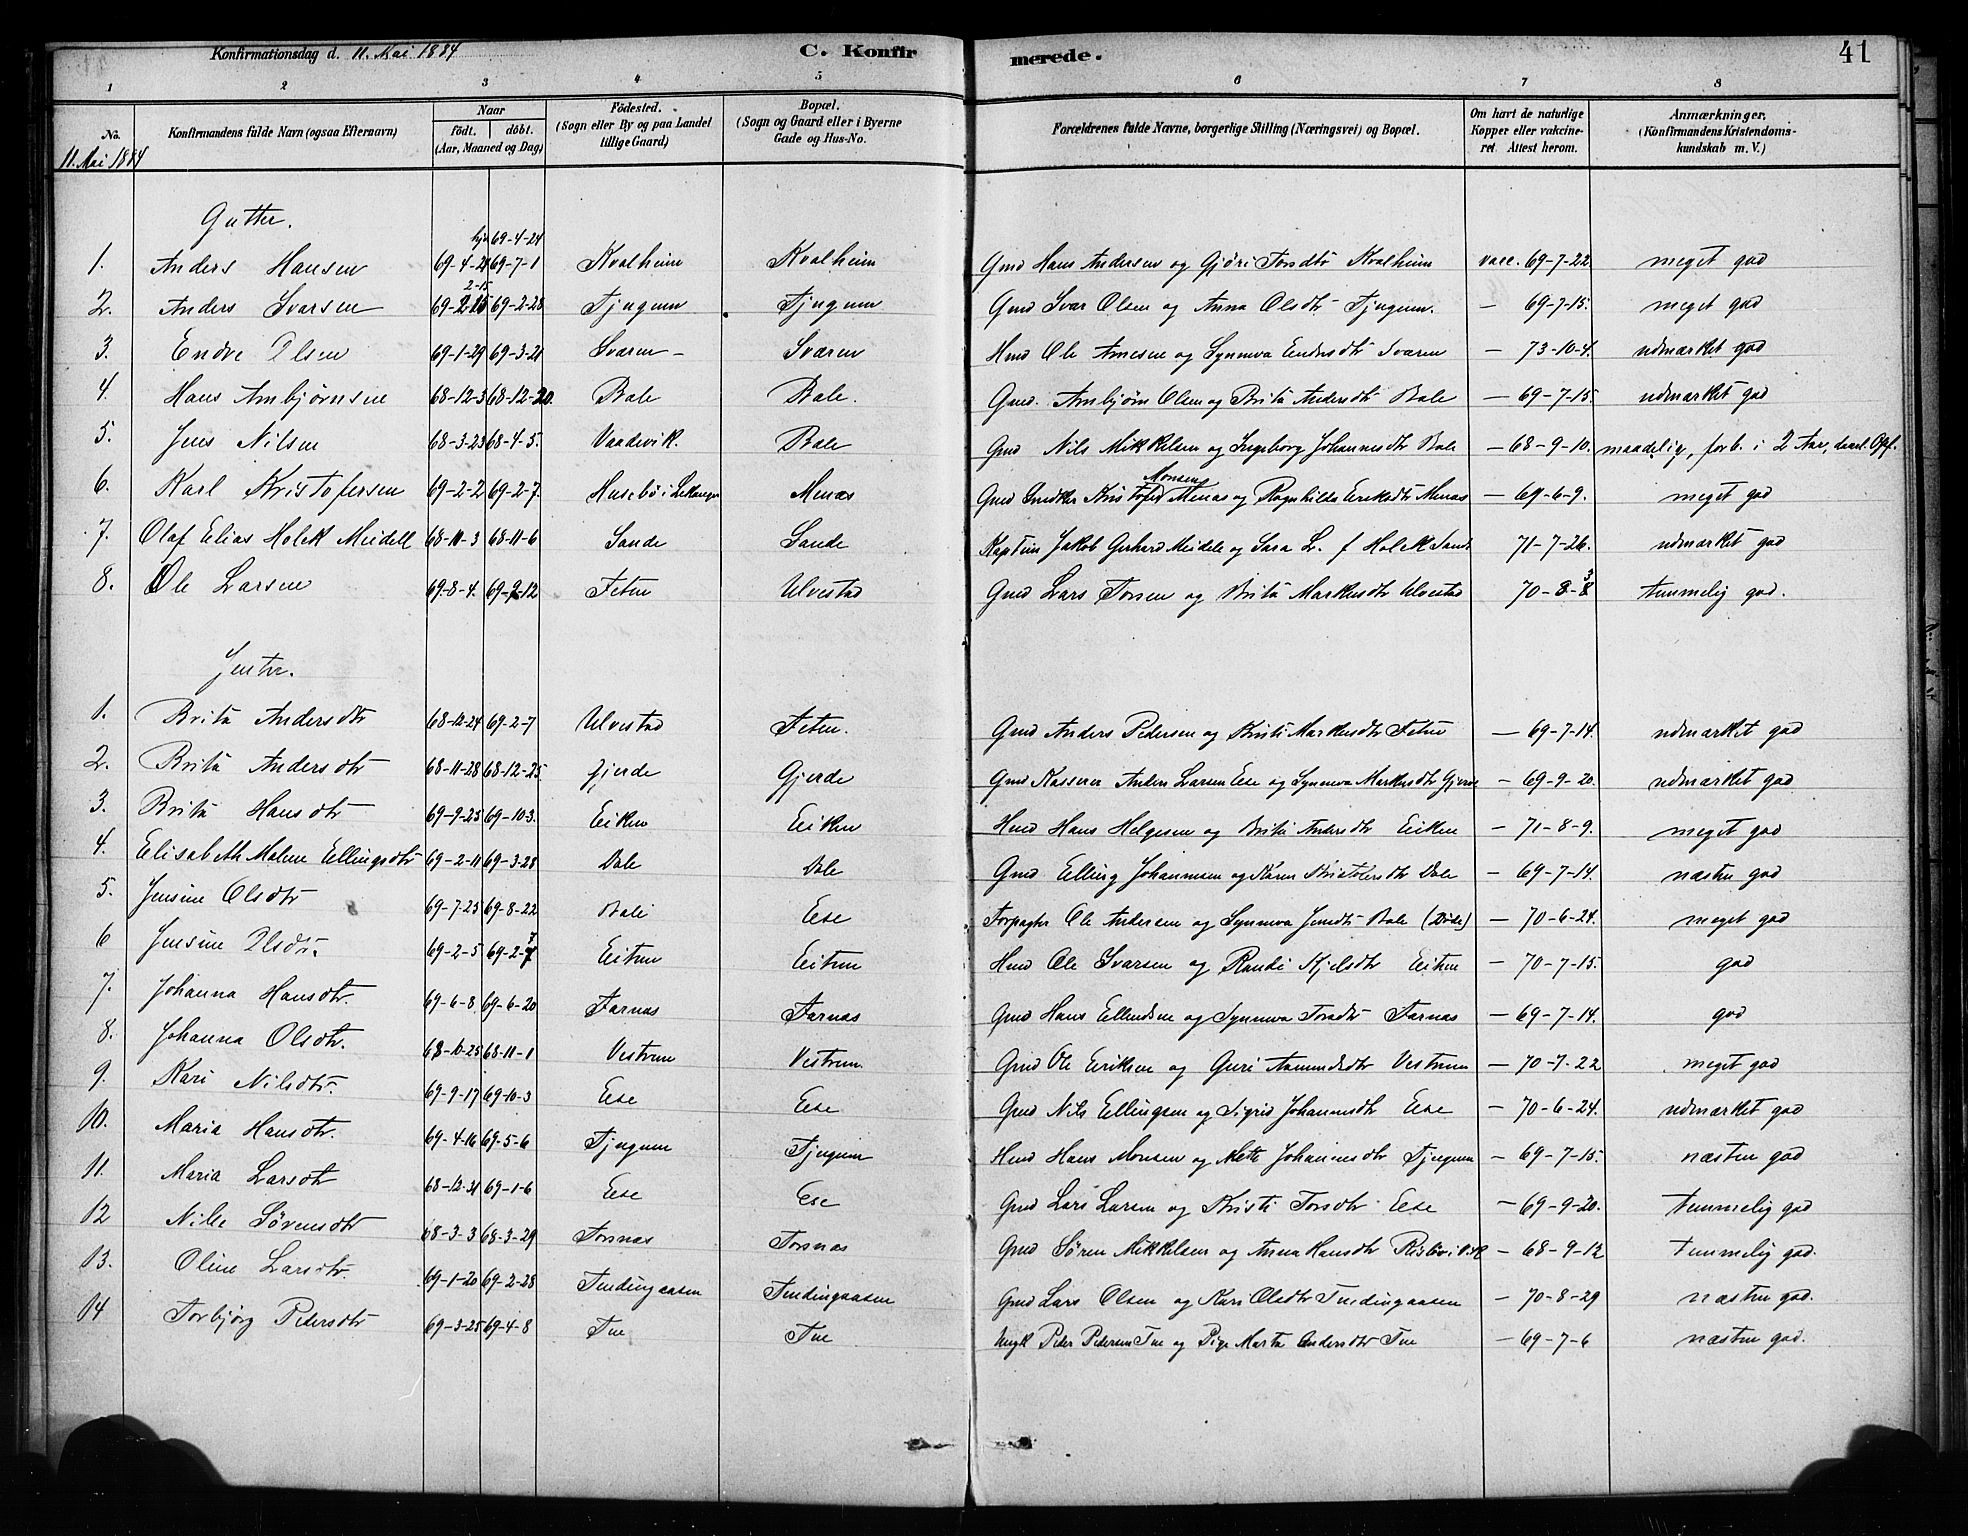 Konfirmationsdag d. 11. Mai 1884
C. Konfirmerede.
41
1 2 3 4 5 6 7 8
No. Konfirmandens fulde Navn (ogsaa Efternavn) Naar födt. döbt. (Aar, Maaned og Dag) Födested. (Sogn eller By og paa Landet tillige Gaard) Bopæl. (Sogn og Gaard eller i Byerne Gade og Hus-No. Forældrenes fulde Navne, borgerlige Stilling (Næringsvei) og Bopæl. Om havt de naturlige Kopper eller vakcineret. Attest herom. Anmærkninger. (Konfirmandens Kristendomskundskab m. V.)
11. Mai 1884
Gutter.
hjd 69-4-24
1. Anders Hansen 69-4-21 69-7-1 Kvalheim Kvalheim Gmd Hans Andersen og Gjöri Tordtr Kvalheim vacc. 69-7-22 meget god
2-15
2. Anders Ivarsen 69-2-15 69-2-28 Tjugum Tjugum Gmd Ivar Olsen og Anna Olsdtr Tjugum. — 69-7-15. meget god
3. Endre Olsen 69-1-29 69-3-21 Sværen Sværen Hmd Ole Arnesen og Synneva Endersdtr Sværen — 73-10-4. udmærket god
4. Hans Arnbjørnsen 68-12-3 68-12-20. Bale Bale. Gmd. Arnbjørn Olsen og Brita Andersdtr Bale — 69-7-15. udmærket god
5. Jens Nilsen 68-3-23 68-4-5. Vaadevik. Bale Gmd Nils Mikkelsen og Ingeborg Johannesdtr Bale — 68-9-10. maadelig, forb. i 2 Aar, daarl. Opf.
6. Karl Kristofersen 69-2-2 69-2-7. Husebö i Leikanger Menæs Gmd Snedker Kristofer Monsen Menæs og Ragnhilda Eriksdtr Menæs — 69-6-9. meget god
7. Olaf Elias Holck Meidell 68-11-3 68-11-6 Sande Sande Kaptein Jakob Gerhard Meidell og Sara L. f Holck Sande 71-7-26. udmærket god
8. Ole Larsen 69-8-4. 69-9-12 Feten Ulvestad Gmd Lars Torsen og Brita Markusdtr Ulvestad 70-8-8 temmelig god.
Jenter.
1. Brita Andersdtr 68-12-24 69-2-7 Ulvestad Feten. Gmd Anders Pedersen og Kristi Markusdtr Feten — 69-7-14. udmærket god
2. Brita Andersdtr 68-11-28 68-12-25 Gjerde Gjerde Gmd Kasserer Anders Larsen Ese og Synneva Markusdtr Gjerde — 69-9-20. udmærket god
3. Brita Hansdtr 69-9-23 69-10-3. Eiken Eiken Hmd Hans Helgesen og Brita Andersdtr Eiken — 71-8-9. meget god
4. Elisabeth Malene Ellingsdtr 69-2-11 69-3-28 Dale Dale Gmd Elling Johannesen og Karen Kristofersdtr Dale — 69-7-14. næsten god
5. Jensine Olsdtr 69-7-25 69-8-22 Bale Ese Forpagter Ole Andersen og Synneva Jensdtr Bale (Döde) — 70-6-24. meget god
6 Jensine Olsdtr. 69-2-5 69-2-7 Eitren Eitren Hmd Ole Ivarsen og Randi Kjelsdtr Eitren — 70-7-15. god
7. Johanna Hansdtr. 69-6-8 69-6-20 Farnæs Farnæs Gmd Hans Ellendsen og Synneva Tordtr Farnæs — 69-7-14. god
8. Johanna Olsdtr. 68-10-25 68-11-1 Vestrum Vestrum Gmd Ole Eriksen og Guri Aamundsdtr Vestrum — 70-7-22 meget god
9. Kari Nilsdtr. 69-9-17 69-10-3 Ese Ese Gmd Nils Ellingsen og Sigrid Johannesdtr Ese — 70-6-24. udmærket god
10. Maria Hansdtr. 69-4-16 69-5-6 Tjugum Tjugum Hmd Hans Monsen og Mette Johannesdtr Tjugum — 69-7-15. næsten god
11. Maria Larsdtr 68-12-31 69-1-6 Ese Ese Gmd Lars Larsen og Kristi Torsdtr Ese — 69-9-20. temmelig god
12 Nille Sørensdtr 68-3-3 68-3-29 Torsnæs Torsnæs Gmd Sören Mikkelsen og Anna Hansdtr — 68-9-12 temmelig god.
13. Oline Larsdtr. 69-1-20 69-2-28 Tendingaasen Tendingaasen Gmd Lars Olsen og Kari Olsdtr Tendingaasen — 70-8-29 næsten god.
14 Torbjörg Pedersdtr 69-3-25 69-4-8 Tue Tue Ungk Peder Pedersen Tue og Pige Marta Andersdtr Tue — 69-7-6 næsten god.